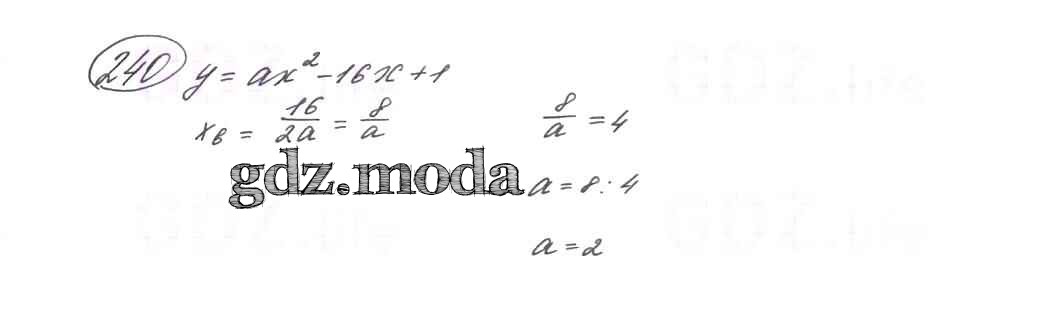 240 y = ax² - 16x + 1
xв = 16/2a = 8/a
8/a = 4
gdz.moda
a = 8 : 4
a = 2
GDZ.life
GDZ.life
GDZ.life
GDZ.life